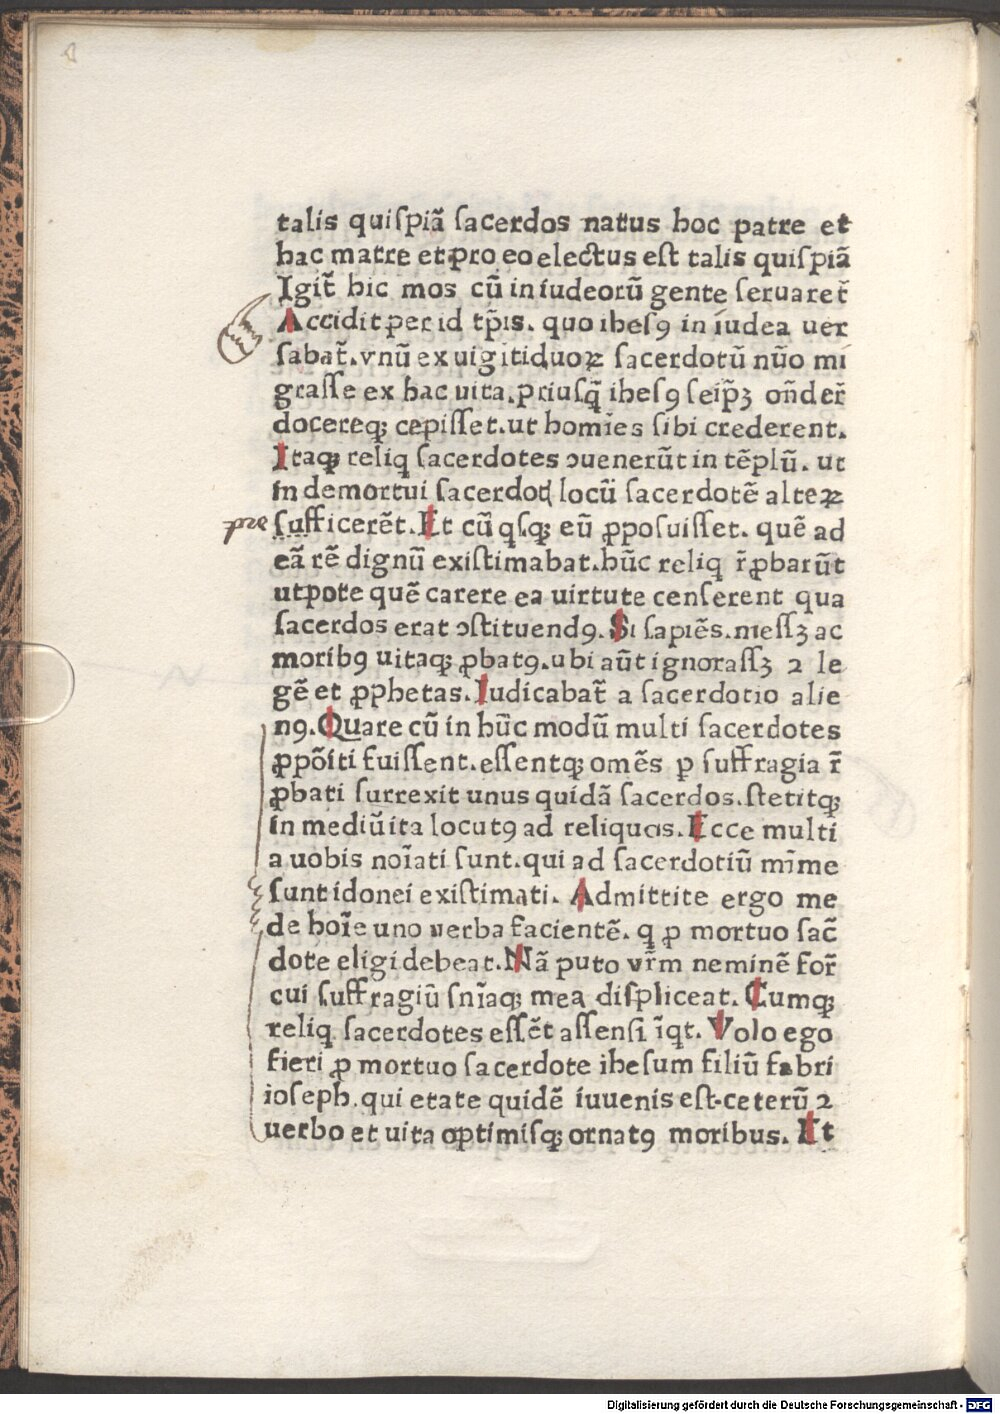 talis quiſpiã ſacerdos natus hoc patre et
hac matre et pro eo electus est talis quiſpiã
Igit̃ hic mos cũ in iudeorũ gente ſeruaret̃
Accidit per id tp̃is. quo iheſꝯ in iudea uer
ſabat̃. vnũ ex uigitiduoꝝ ſacerdotũ nũo mi
graſſe ex hac uita. priuſq̃ iheſꝯ ſeip̃ꝫ oñder̃
docereqꝫ cepiſſet. ut homĩes ſibi crederent.
Itaqꝫ reliq ſacerdotes ↄuenerũt in tẽplũ. ut
in demortui ſacerdotꝭ locũ ſacerdotẽ alteꝝ
pre ſufficerẽt. Et cũ qſqꝫ eũ ꝓpoſuiſſet. quẽ ad
eã rẽ dignũ existimabat. hũc reliq r̃ꝓbarũt
utpote quẽ carere ea uirtute cenſerent qua
ſacerdos erat ↄstituendꝯ. Si ſapiẽs. nieſſꝫ ac
moribꝯ uitaqꝫ ꝓbatꝯ. ubi aũt ignoraſſꝫ ꝛ le
gẽ et ꝓphetas. Iudicabat̃ a ſacerdotio alie
nꝯ. Quare cũ in hũc modũ multi ſacerdotes
ꝓpõiti fuiſſent. eſſentqꝫ omẽs ꝑ ſuffragia r̃
ꝓbati ſurrexit unus quidã ſacerdos. stetitqꝫ
in mediũ ita locutꝯ ad reliquos. Ecce multi
a uobis noĩati ſunt. qui ad ſacerdotiũ mĩme
ſunt idonei existimati. Admittite ergo me
de hoĩe uno uerba facientẽ. q ꝓ mortuo ſac̃
dote eligi debeat. Nã puto vr̃m neminẽ for̃
cui ſuffragiũ ſnĩaqꝫ mea diſpliceat. Cumqꝫ
reliq ſacerdotes eſſẽt aſſenſi ĩqt. Volo ego
fieri ꝓ mortuo ſacerdote iheſum filiũ fabri
ioſeph. qui etate quidẽ iuuenis est. ceterũ ꝛ
uerbo et uita optimiſqꝫ ornatꝯ moribus. Et
Digitalisierung gefördert durch die Deutsche Forschungsgemeinschaft - DFG